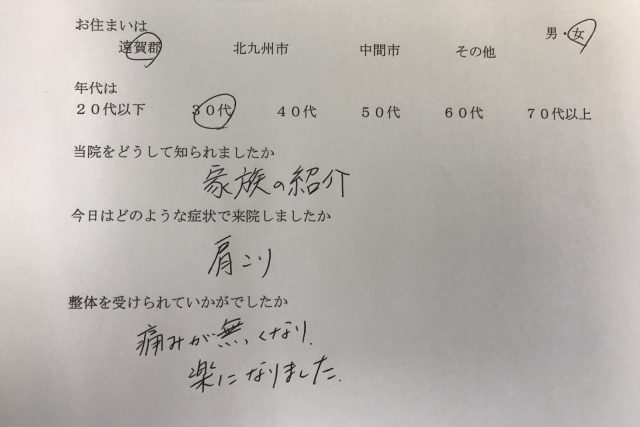 お住まいは
男・女
遠賀郡 北九州市 中間市 その他
年代は
２０代以下 ３０代 ４０代 ５０代 ６０代 ７０代以上
当院をどうして知られましたか
家族の紹介
今日はどのような症状で来院しましたか
肩こり
整体を受けられていかがでしたか
痛みが無くなり、
楽になりました。